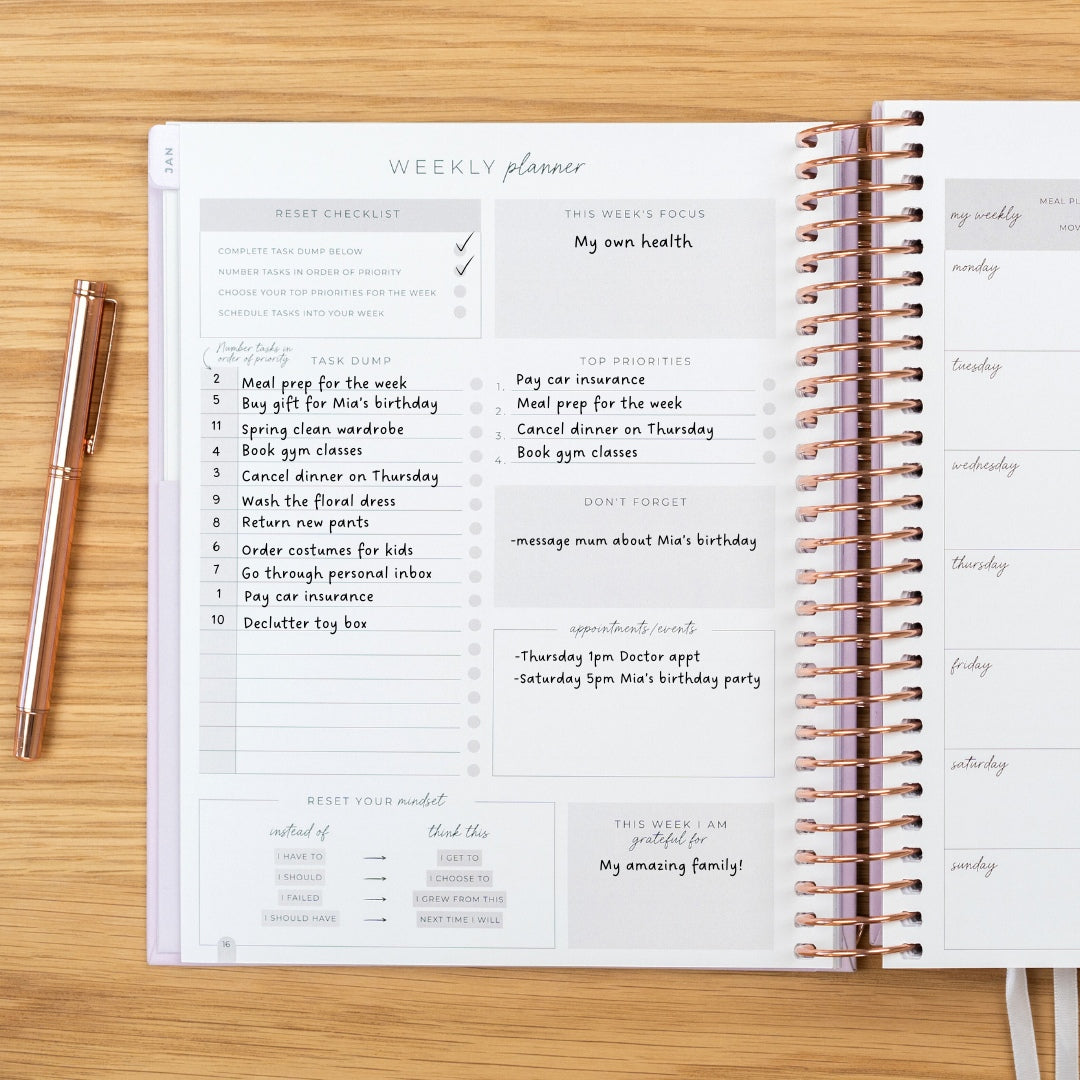 JAN
WEEKLY planner
RESET CHECKLIST
COMPLETE TASK DUMP BELOW
NUMBER TASKS IN ORDER OF PRIORITY
CHOOSE YOUR TOP PRIORITIES FOR THE WEEK
SCHEDULE TASKS INTO YOUR WEEK
THIS WEEK'S FOCUS
My own health
Number tasks in
order of priority
TASK DUMP
2 Meal prep for the week
5 Buy gift for Mia's birthday
11 Spring clean wardrobe
4 Book gym classes
3 Cancel dinner on Thursday
9 Wash the floral dress
8 Return new pants
6 Order costumes for kids
7 Go through personal inbox
1 Pay car insurance
10 Declutter toy box
TOP PRIORITIES
1. Pay car insurance
2. Meal prep for the week
3. Cancel dinner on Thursday
4. Book gym classes
DON'T FORGET
-message mum about Mia's birthday
appointments/events
-Thursday 1pm Doctor appt
-Saturday 5pm Mia's birthday party
RESET YOUR mindset
instead of think this
I HAVE TO → I GET TO
I SHOULD → I CHOOSE TO
I FAILED → I GREW FROM THIS
I SHOULD HAVE → NEXT TIME I WILL
THIS WEEK I AM
grateful for
My amazing family!
16
my weekly
MEAL PL
MOV
monday
tuesday
wednesday
thursday
friday
saturday
sunday